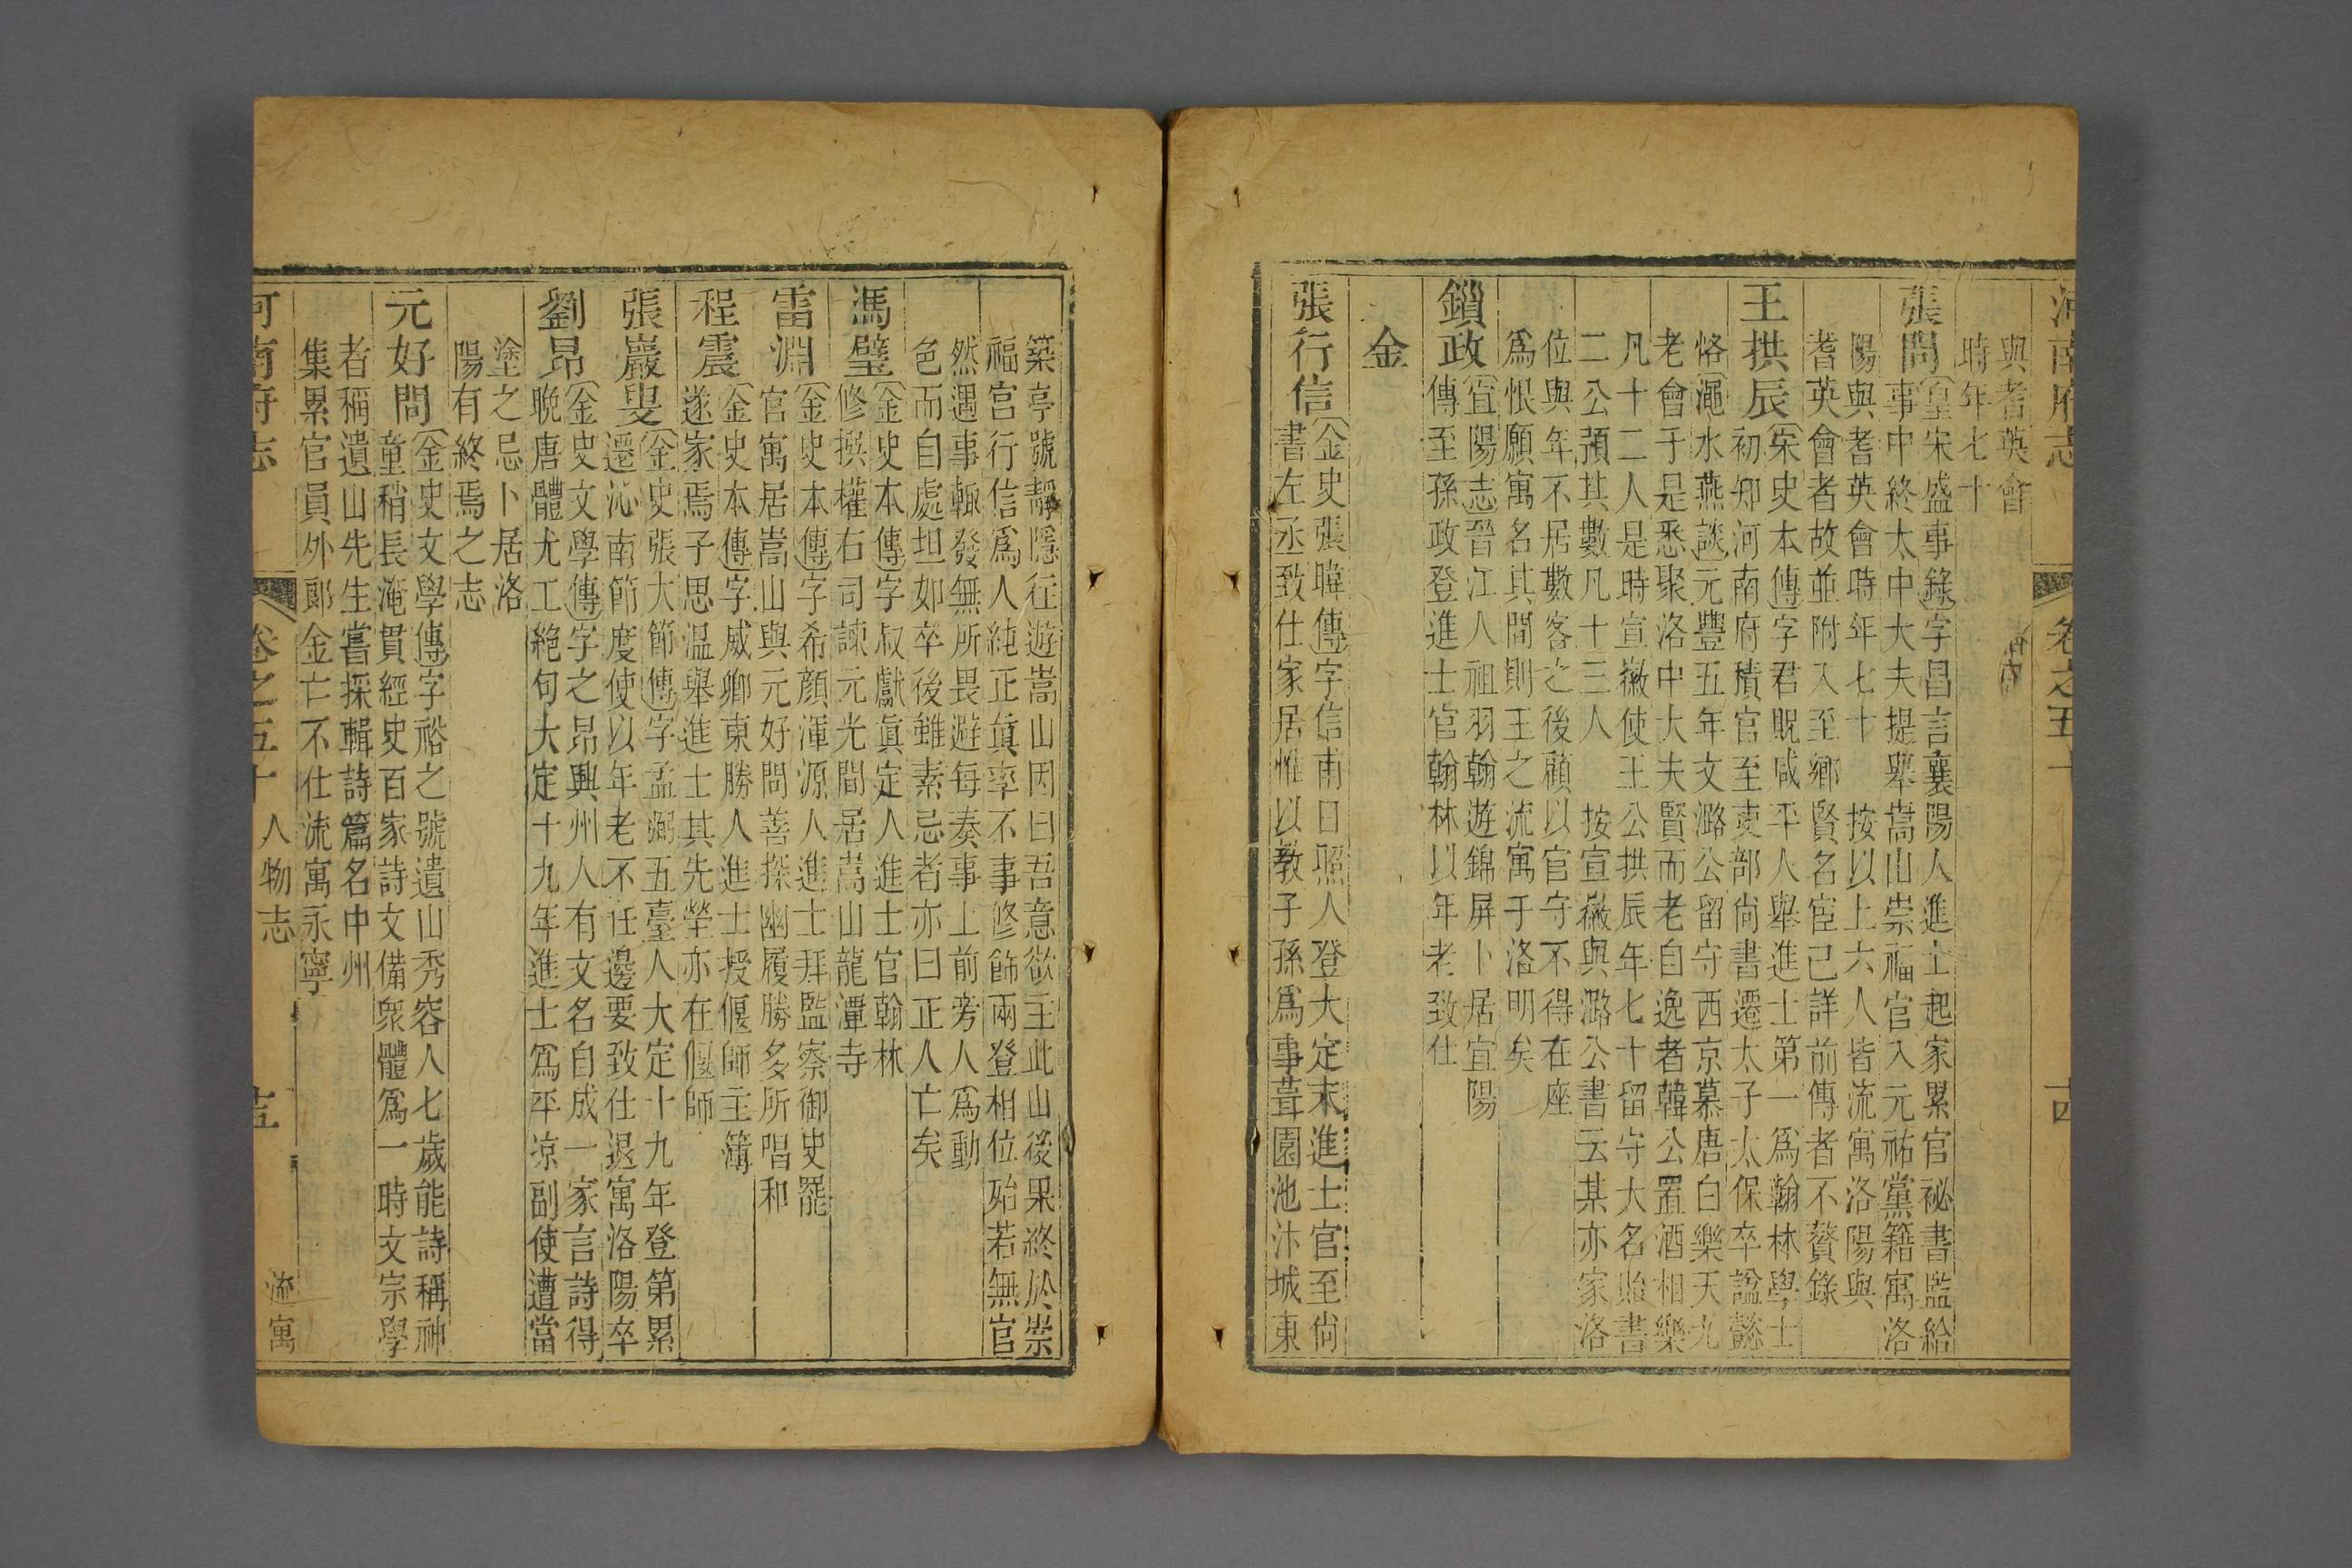 河南府志
卷之五十
古
與耆英會
時年七十
張問
皇宋盛事錄字昌言襄陽人進士起家累官祕書監給
事中終太中大夫提舉嵩山崇福宮入元祐黨籍寓洛
陽與耆英會時年七十 按以上六人皆流寓洛陽與
耆英會者故並附入至鄉賢名宦已詳前傳者不贅錄
王拱辰
宋史本傳字君貺咸平人舉進士第一爲翰林學士
初知河南府積官至吏部尚書遷太子太保卒諡懿
恪澠水燕談元豐五年文潞公留守西京慕唐白樂天九
老會于是悉聚洛中大夫賢而老自逸者韓公置酒相樂
凡十二人是時宣徽使王公拱辰年七十留守大名貽書
二公預其數凡十三人 按宣徽與潞公書云某亦家洛
位與年不居數客之後顧以官守不得在座
爲恨願寓名其間則王之流寓于洛明矣
鎖政
宜陽志晉江人祖羽翰遊錦屏卜居宜陽
傳至孫政登進士官翰林以年老致仕
金
張行信
金史張暐傳字信甫日照人登大定末進士官至尚
書左丞致仕家居惟以教子孫爲事葺園池汴城東
築亭號靜隱行遊嵩山因曰吾意欲主此山後果終於崇
福宮行信爲人純正真率不事修飾兩登相位殆若無官
然遇事輒發無所畏避每奏事上前旁人爲動
色而自處坦如卒後雖素忌者亦曰正人亡矣
馮璧
金史本傳字叔獻真定人進士官翰林
修撰權右司諫元光間居嵩山龍潭寺
雷淵
金史本傳字希顏渾源人進士拜監察御史罷
官寓居嵩山與元好問善探幽履勝多所唱和
程震
金史本傳字威卿東勝人進士授偃師主簿
遂家焉子思溫舉進士其先塋亦在偃師
張巖叟
金史張大節傳字孟弼五臺人大定十九年登第累
遷沁南節度使以年老不任邊要致仕退寓洛陽卒
劉昂
金史文學傳字之昂興州人有文名自成一家言詩得
晚唐體尤工絕句大定十九年進士爲平凉副使遭當
塗之忌卜居洛
陽有終焉之志
元好問
金史文學傳字裕之號遺山秀容人七歲能詩稱神
童稍長淹貫經史百家詩文備衆體爲一時文宗學
者稱遺山先生嘗採輯詩篇名中州
集累官員外郎金亡不仕流寓永寧
河南府志
卷之五十 人物志
流寓